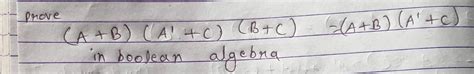 Prove
(A+B) (A'+C) (B+C) =(A+B)(A'+C)
in boolean algebra